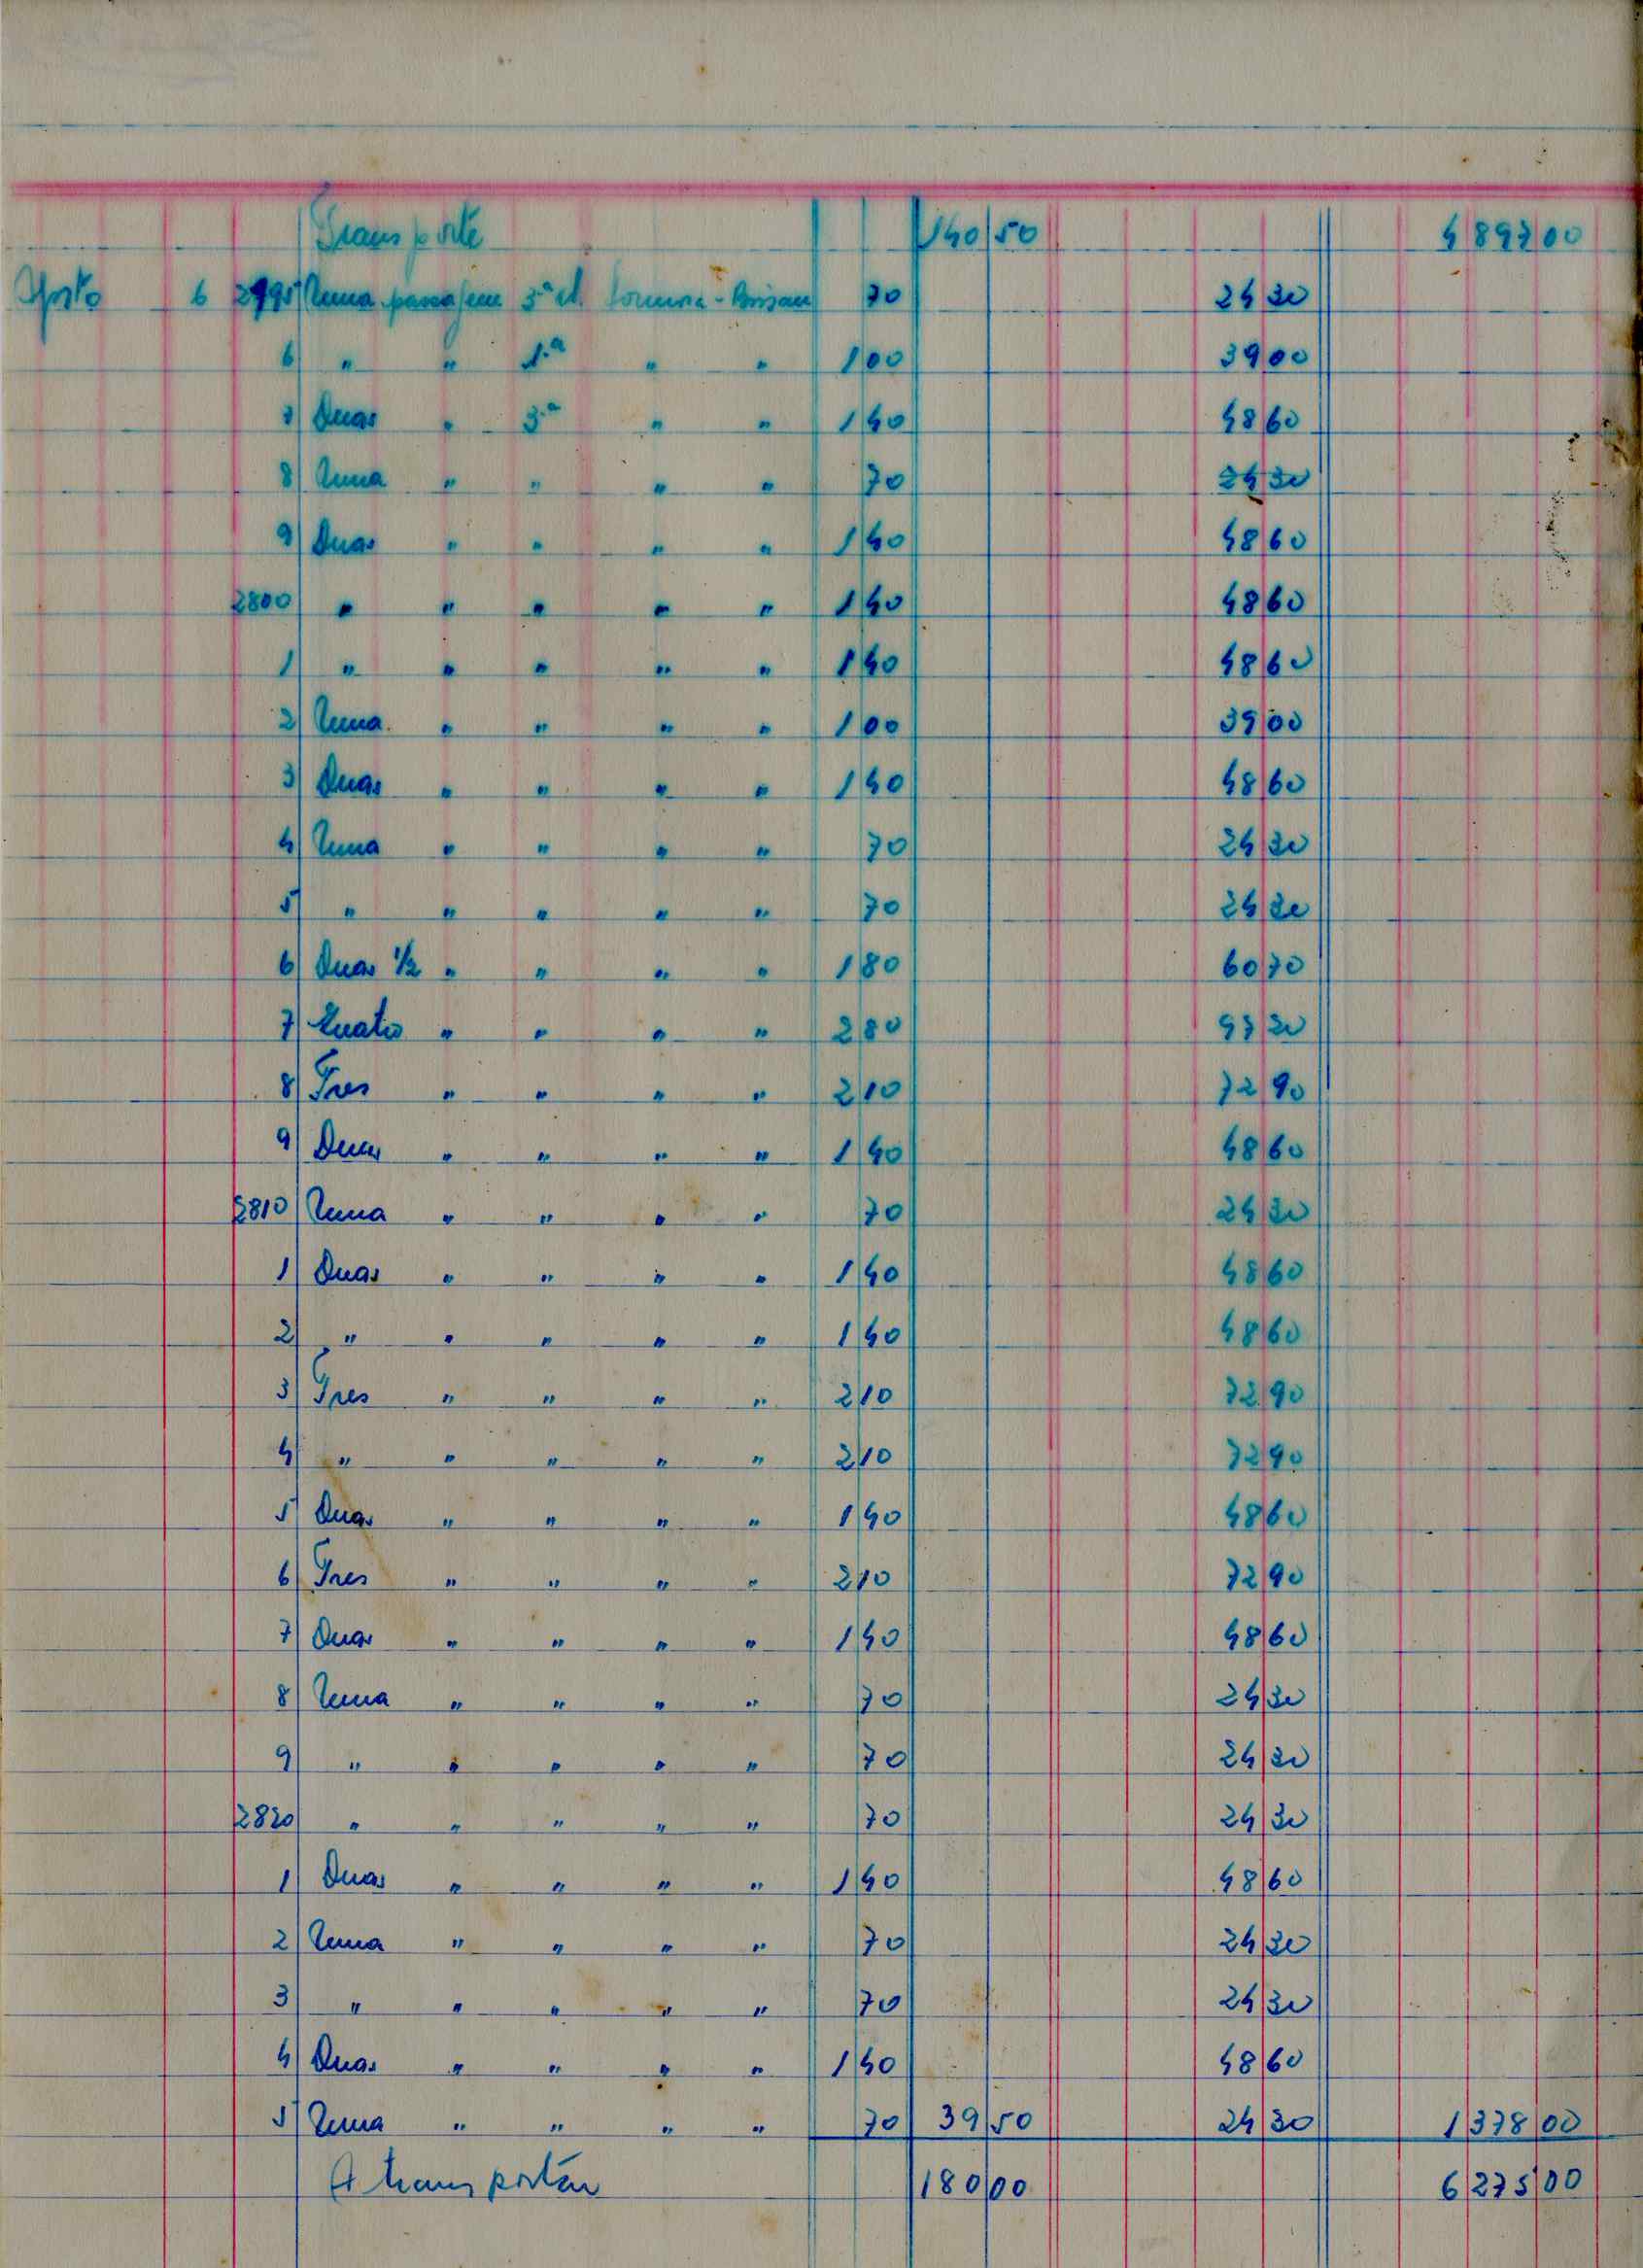 Transporte 140 50 4 897 00
Agosto 6 2795 Uma passagem 3ª cl. Formosa - Bissau 70 24 30
6 " " 1.ª " " 1 00 39 00
7 Duas " 3.ª " " 1 40 48 60
8 Uma " " " " 70 24 30
9 Duas " " " " 1 40 48 60
2800 " " " " " 1 40 48 60
1 " " " " " 1 40 48 60
2 Uma " " " " 1 00 39 00
3 Duas " " " " 1 40 48 60
4 Uma " " " " 70 24 30
5 " " " " " 70 24 30
6 Duas 1/2 " " " " 1 80 60 70
7 Quatro " " " " 2 80 97 20
8 Tres " " " " 2 10 72 90
9 Duas " " " " 1 40 48 60
2810 Uma " " " " 70 24 30
1 Duas " " " " 1 40 48 60
2 " " " " " 1 40 48 60
3 Tres " " " " 2 10 72 90
4 " " " " " 2 10 72 90
5 Duas " " " " 1 40 48 60
6 Tres " " " " 2 10 72 90
7 Duas " " " " 1 40 48 60
8 Uma " " " " 70 24 30
9 " " " " " 70 24 30
2820 " " " " " 70 24 30
1 Duas " " " " 1 40 48 60
2 Uma " " " " 70 24 30
3 " " " " " 70 24 30
4 Duas " " " " 1 40 48 60
5 Uma " " " " 70 39 50 24 30 1 378 00
A transportar 180 00 6 275 00